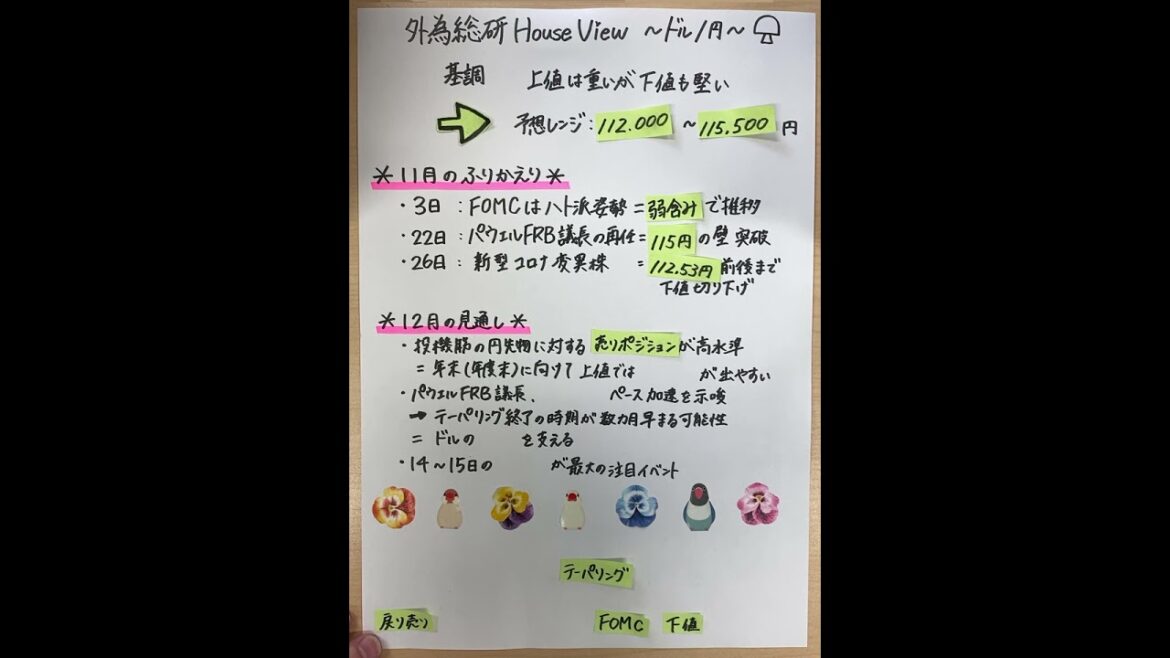 外為総研 House View ～ドル/円～
基調 上値は重いが下値も堅い
予想レンジ:112.000～115.500円
＊11月のふりかえり＊
・3日:FOMCはハト派姿勢=弱含みで推移
・22日:パウエルFRB議長の再任=115円の壁突破
・26日:新型コロナ変異株=112.53円前後まで
下値切り下げ
＊12月の見通し＊
・投機筋の円先物に対する売りポジションが高水準
=年末(年度末)に向けて上値では が出やすい
・パウエルFRB議長、 ペース加速を示唆
→テーパリング終了の時期が数カ月早まる可能性
=ドルの を支える
・14～15日の が最大の注目イベント
テーパリング
戻り売り FOMC 下値